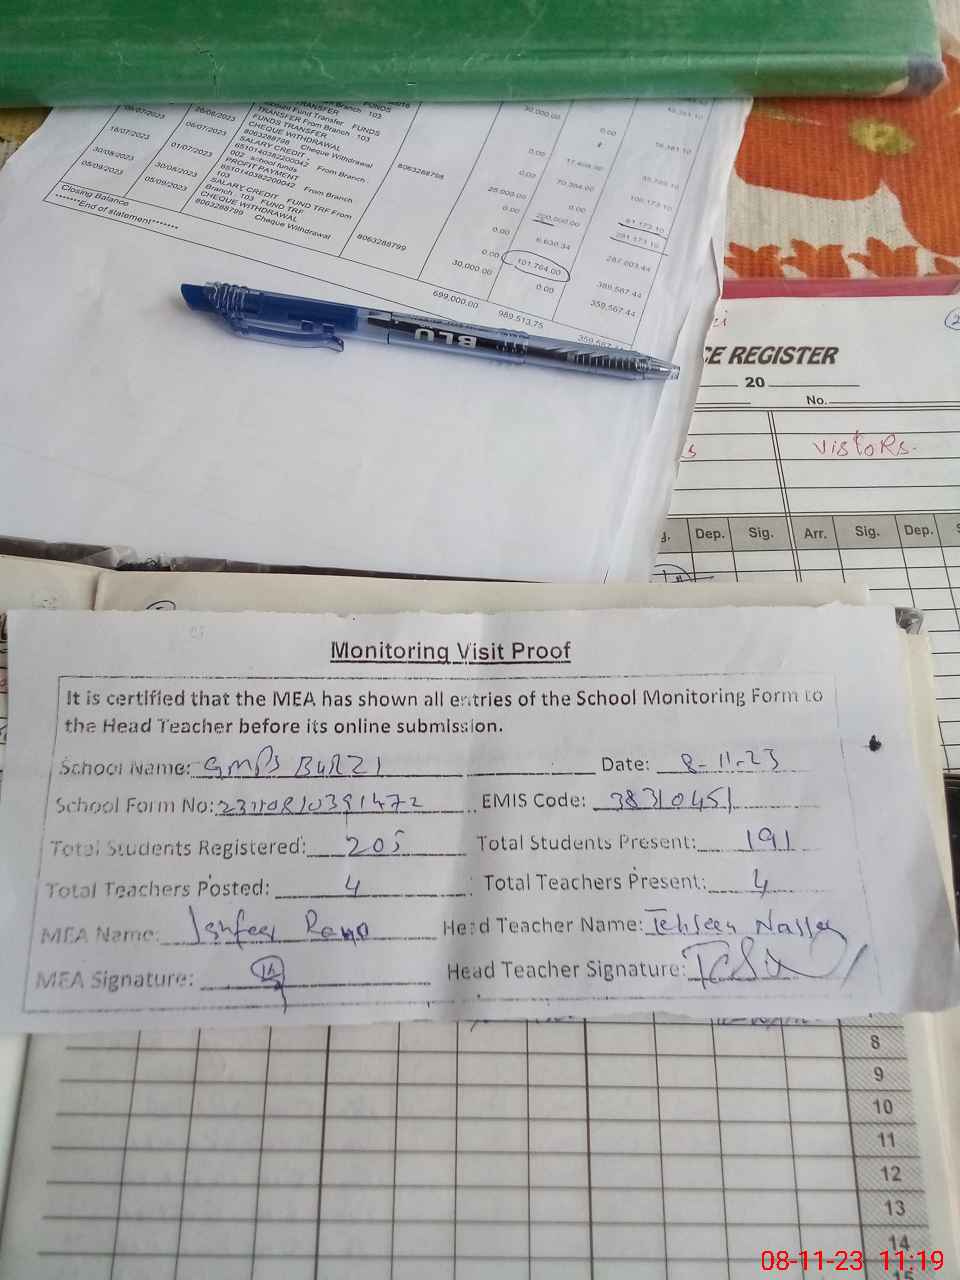 05/07/2023
26/08/2023
TRANSFER From Branch 103 FUNDS
Account Fund Transfer FUNDS
TRANSFER From Branch 103
FUNDS TRANSFER
CHEQUE WITHDRAWAL
18/07/2023 06/07/2023 8063288798 Cheque Withdrawal 8063288798
SALARY CREDIT
6510140382200042 From Branch
002 school funds
30/08/2023 01/07/2023 PROFIT PAYMENT
6510140382200042 From Branch
103
05/09/2023 30/08/2023 SALARY CREDIT FUND TRF From
Branch 103 FUND TRF
05/09/2023 CHEQUE WITHDRAWAL
8063288799 Cheque Withdrawal 8063288799
30,000.00
0.00
0.00
0.00 70,384.00
25,000.00 0.00 106,173.10
0.00 200,000.00 81,173.10
0.00 6,630.34 281,173.10
0.00 101,764.00 287,803.44
30,000.00 0.00 389,567.44
359,567.44
Closing Balance 699,000.00 989,513.75 359,567.44
*******End of statement*******
BLU
CE REGISTER
20
No.
VistoRs.
Dep. Sig. Arr. Sig. Dep.
Monitoring Visit Proof
It is certified that the MEA has shown all entries of the School Monitoring Form to
the Head Teacher before its online submission.
School Name: GMPS BURZI Date: 8-11-23
School Form No: EMIS Code: 38310451
Total Students Registered: 205 Total Students Present: 191
Total Teachers Posted: 4 Total Teachers Present: 4
MEA Name: Head Teacher Name: Tehseen
MEA Signature: Head Teacher Signature:
8
9
10
11
12
13
14
15
08-11-23 11:19